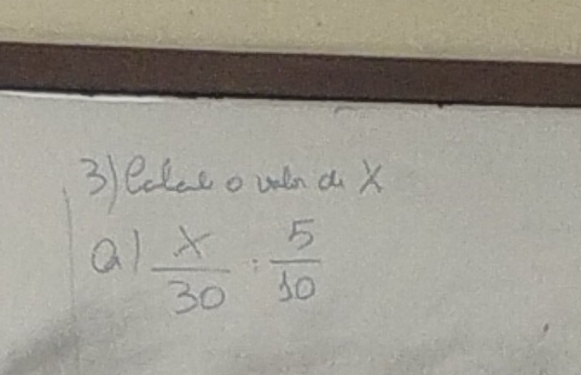 3) Calcule o valor de X
a) X/30 : 5/10